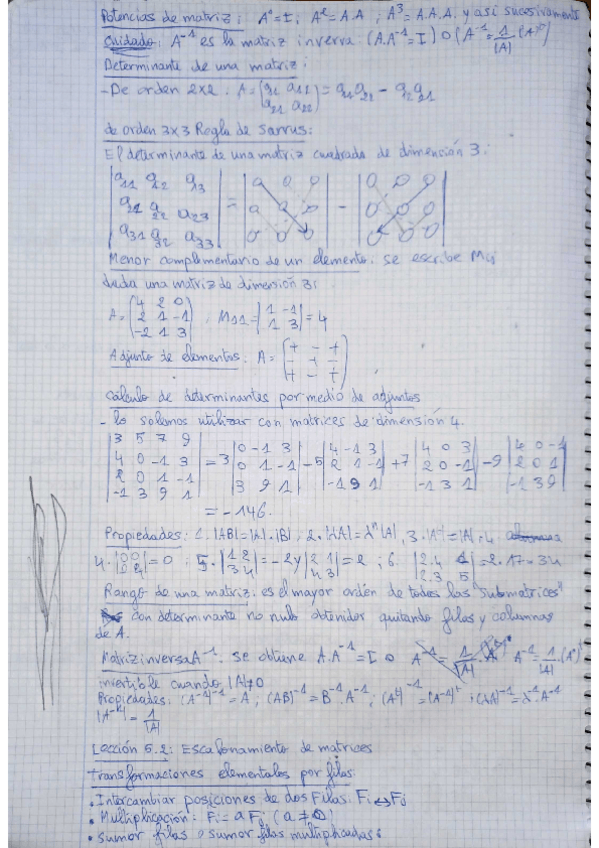 Potencias de matriz: A⁰=I; A²=A.A; A³=A.A.A. y así sucesivamente
Cuidado: A⁻¹ es la matriz inversa (A.A⁻¹=I) o (A⁻¹=1/|A|
Determinante de una matriz:
- De orden 2x2.
de orden 3x3 Regla de Sarrus:
El determinante de una matriz cuadrada de dimensión 3:
a₁₁ a₁₂ a₁₃
a₂₁ a₂₂ a₂₃ = -
a₃₁ a₃₂ a₃₃
Menor complementario de un elemento. se escribe
dada una matriz de dimensión 3:
A= (4 2 0 / 2 1 -1 / -2 1 3) ; M₁₁= |1 -1 / 1 3| = 4
Adjunto de elementos. A= (+ - + / - + - / + - +)
calculo de determinantes por medio de adjuntos
- lo solemos utilizar con matrices de dimensión 4.
|3 5 7 9 / 4 0 -1 3 / 2 0 1 -1 / -1 3 9 1| = 3 |0 -1 3 / 0 1 -1 / 3 9 1| -5 |4 -1 3 / 2 1 -1 / -1 9 1| +7 |4 0 3 / 2 0 -1 / -1 3 1| -9 |4 0 -1 / 2 0 1 / -1 3 9|
= -146.
Propiedades: 1. |AB|=|A|.|B|; 2. |λA|=λⁿ|A|, 3. |Aᵗ|=|A|;
4. =0 ; 5. |1 2 / 3 4| = -2 y |2 1 / 4 3| = 2 ; 6. =2.17=34
Rango de una matriz. es el mayor orden de todos las "submatrices"
con determinante no nulo obtenidos quitando filas y columnas
de A.
Matriz inversa A⁻¹. se obtiene A.A⁻¹=I o A⁻¹= 1/|A|
invertible cuando |A|≠0
Propiedades: (A⁻¹)⁻¹=A; (AB)⁻¹=B⁻¹.A⁻¹; (Aᵗ)⁻¹=(A⁻¹)ᵗ; (λA)⁻¹=λ⁻¹A⁻¹
|A⁻¹| = 1/|A|
Lección 5.2: Escalonamiento de matrices
transformaciones elementales por filas.
• Intercambiar posiciones de dos Filas: Fi ↔ Fj
• Multiplicación: Fi = a Fj (a ≠ 0)
• sumar filas o sumar filas multiplicadas: